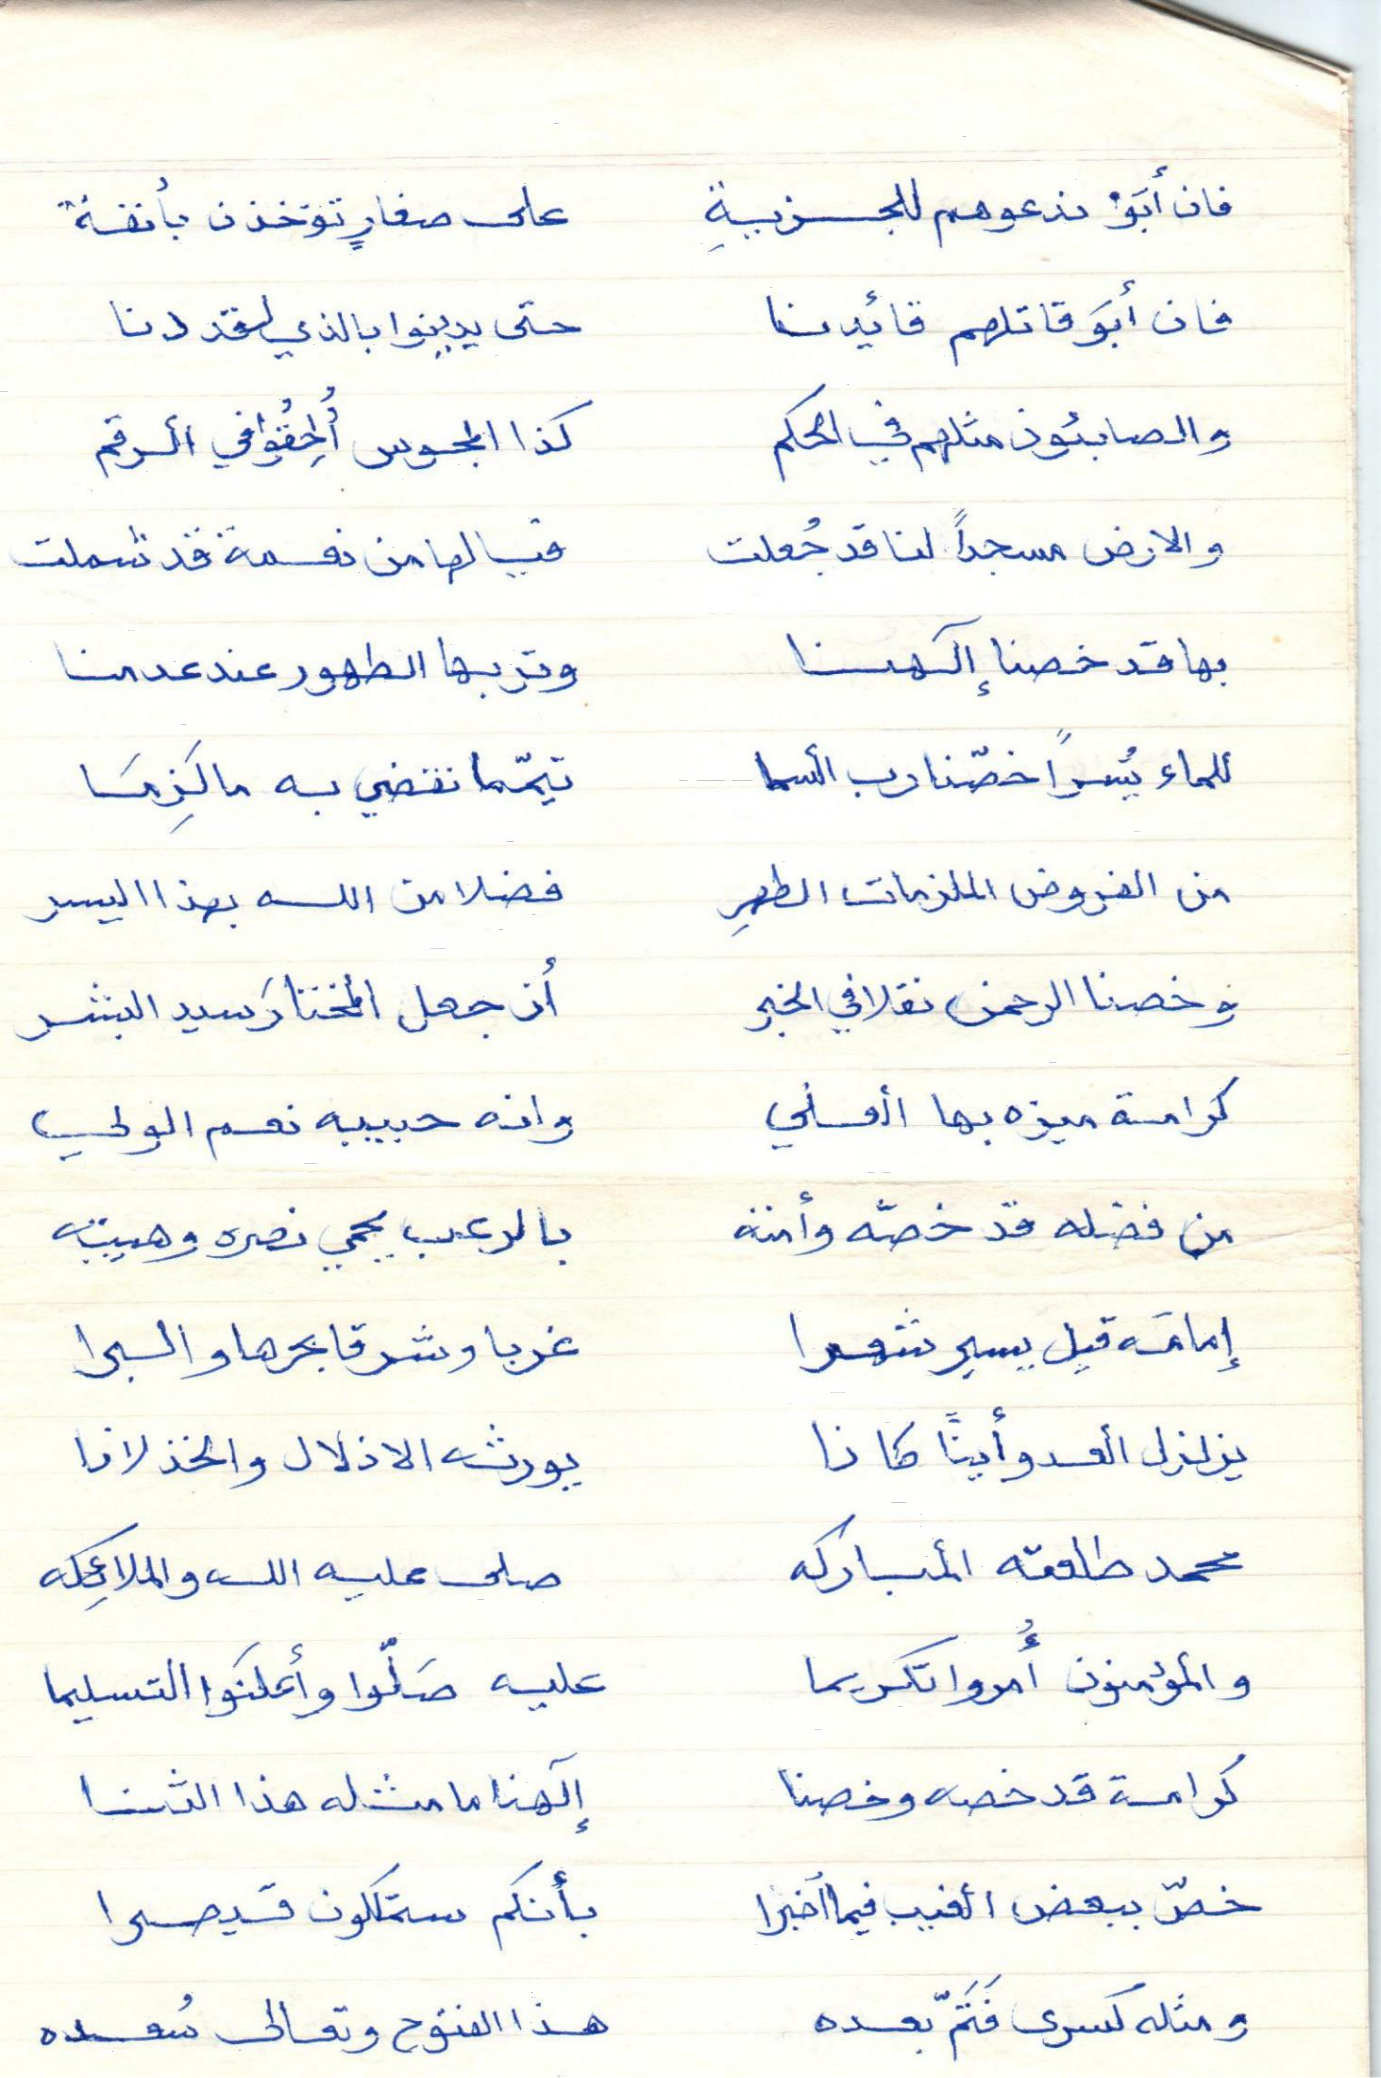 فان أبَوْ ندعوهم للجزيةِ على صغارٍ تؤخذن بأنفة
فان أبَو قاتلهم قائدنا حتى يدينوا بالذي لقد دنا
والصابئون مثلهم في الحكم كذا المجوس أُلحِقُوا في الرقم
والارض مسجداً لنا قد جُعلت فيا لها من نعمة قد شملت
بها قد خصنا إلهنا وتربها الطهور عند عدمنا
للماء يُسراً خصّنا رب السما تيمّما نقضي به ما لَزِمَا
من الفروض الملزمات الطهرِ فضلا من الله بهذا اليسر
وخصنا الرحمن نقلا في الخبر أن جعل المختارَ سيد البشر
كرامة ميزه بها العلي وانه حبيبه نعم الولي
من فضله قد خصّه وأمته بالرعب يحمي نصره وهيبته
إمامَه قبل يسير شهرا غربا وشرقا بحرها والبرا
يزلزل العدو أيناً كانا يورثه الاذلال والخذلانا
محمد طلعته المباركه صلى عليه الله والملائِكه
والمؤمنون أُمروا تكريما عليه صَلّوا وأعلنَوا التسليما
كرامة قد خصه وخصنا إلهنا ما مثله هذا الثنا
خصّ ببعض الغيب فيما اَخبرا بأنكم ستملكون قيصرا
ومثله كسرى فَتَمّ بعده هذا الفتوح وتعالى سُعده